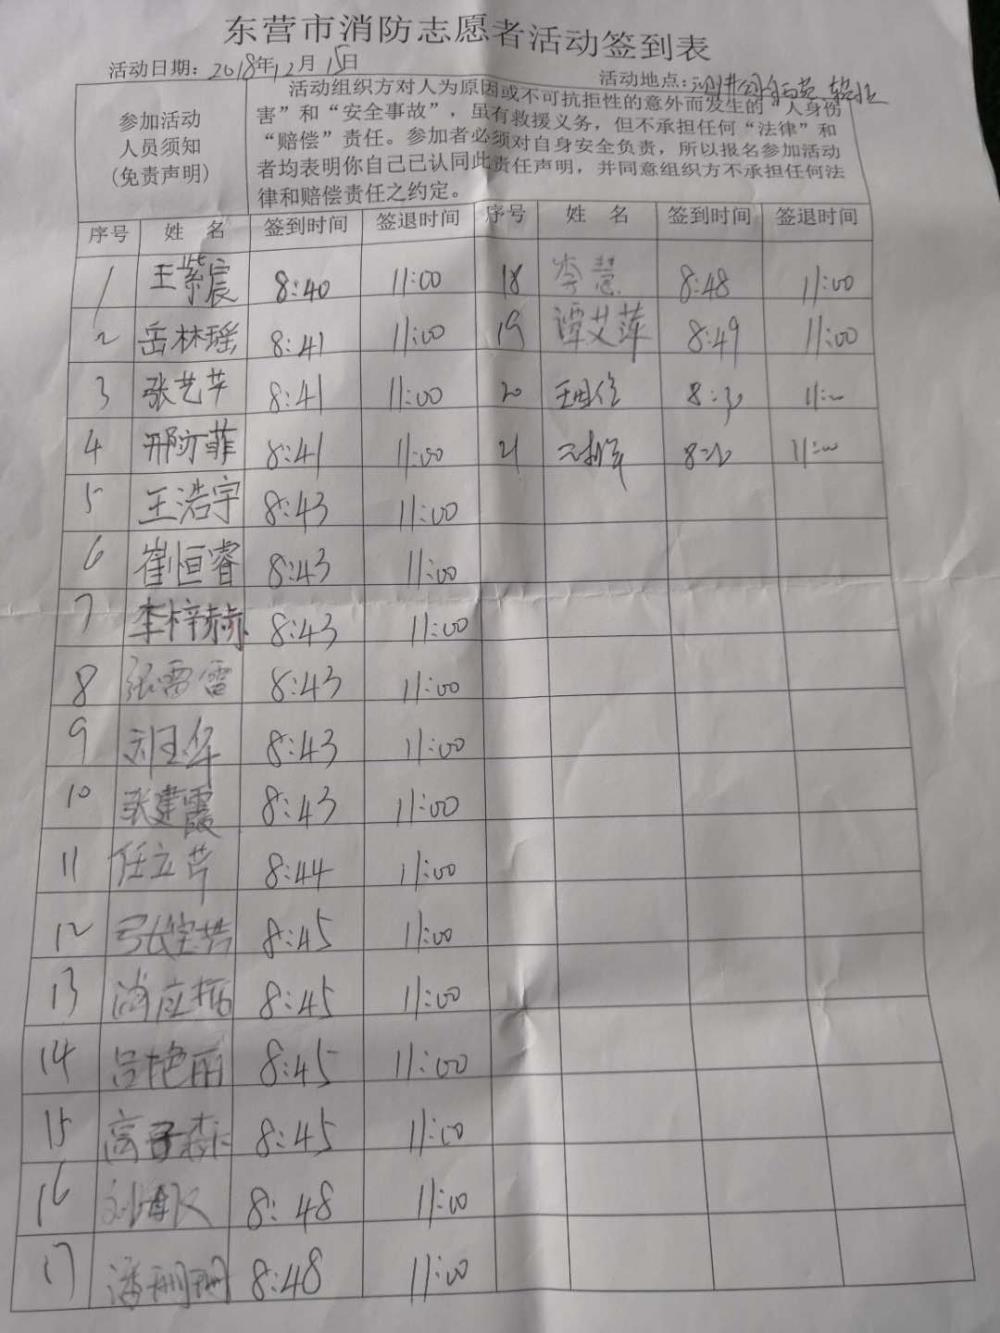 东营市消防志愿者活动签到表
活动日期：2018年12月15日
活动地点：
参加活动
人员须知
(免责声明)
活动组织方对人为原因或不可抗拒性的意外而发生的“人身伤
害”和“安全事故”，虽有救援义务，但不承担任何“法律”和
“赔偿”责任。参加者必须对自身安全负责，所以报名参加活动
者均表明你自己已认同此责任声明，并同意组织方不承担任何法
律和赔偿责任之约定。
序号 姓 名 签到时间 签退时间 序号 姓 名 签到时间 签退时间
1 王紫宸 8:40 11:00 18 李慧 8:48 11:00
2 岳林瑶 8:41 11:00 19 谭艾萍 8:49 11:00
3 张艺苹 8:41 11:00 20 8:30 11:00
4 邢芳菲 8:41 11:00 21 8:20 11:00
5 王浩宇 8:43 11:00
6 崔恒睿 8:43 11:00
7 李梓赫 8:43 11:00
8 张雷雷 8:43 11:00
9 刘王华 8:43 11:00
10 张建霞 8:43 11:00
11 任立芹 8:44 11:00
12 8:45 11:00
13 8:45 11:00
14 吕艳丽 8:45 11:00
15 高子森 8:45 11:00
16 8:48 11:00
17 潘珊珊 8:48 11:00